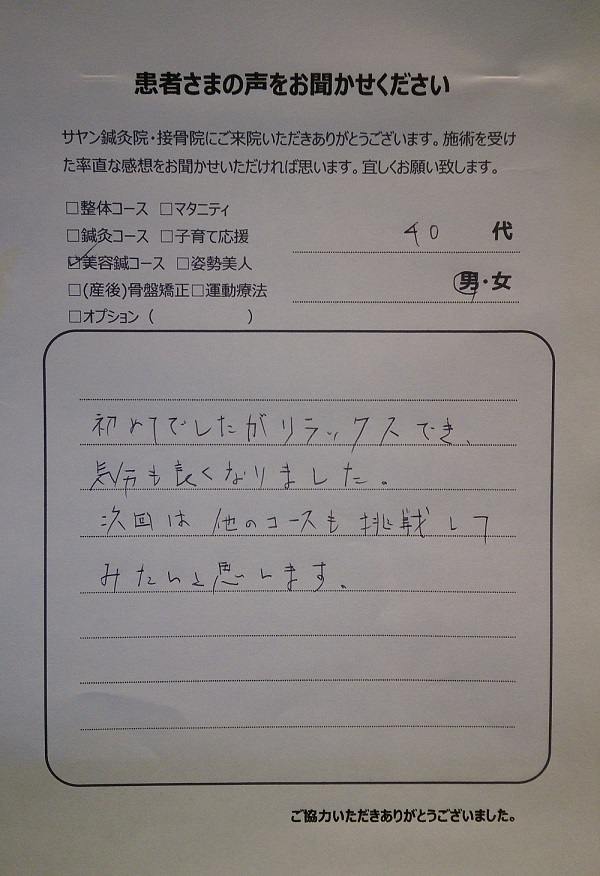 患者さまの声をお聞かせください
サヤン鍼灸院・接骨院にご来院いただきありがとうございます。施術を受け
た率直な感想をお聞かせいただければ思います。宜しくお願い致します。
□整体コース □マタニティ
□鍼灸コース □子育て応援
☑美容鍼コース □姿勢美人
□(産後)骨盤矯正□運動療法
□オプション（　　　　　　）
40 代
男・女
初めてでしたがリラックスでき、
気分も良くなりました。
次回は他のコースも挑戦して
みたいと思います。
ご協力いただきありがとうございました。